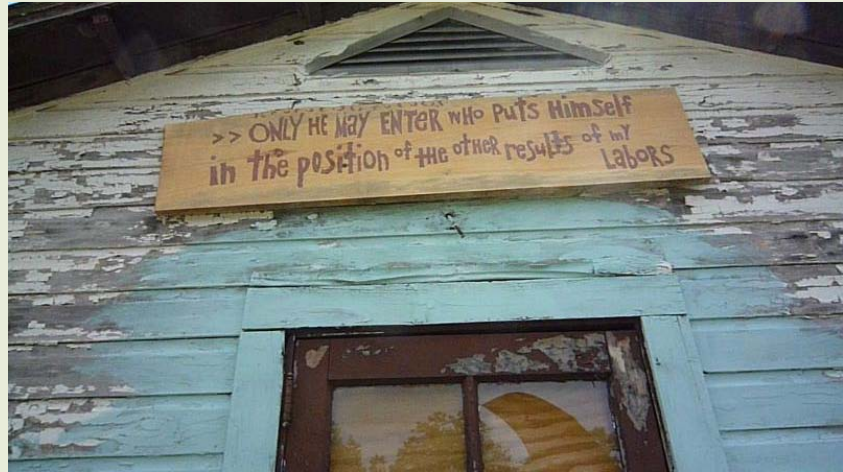 >> ONLY HE MAY ENTER WHO PUTS HIMSELF
in the position of the other results of my LABORS